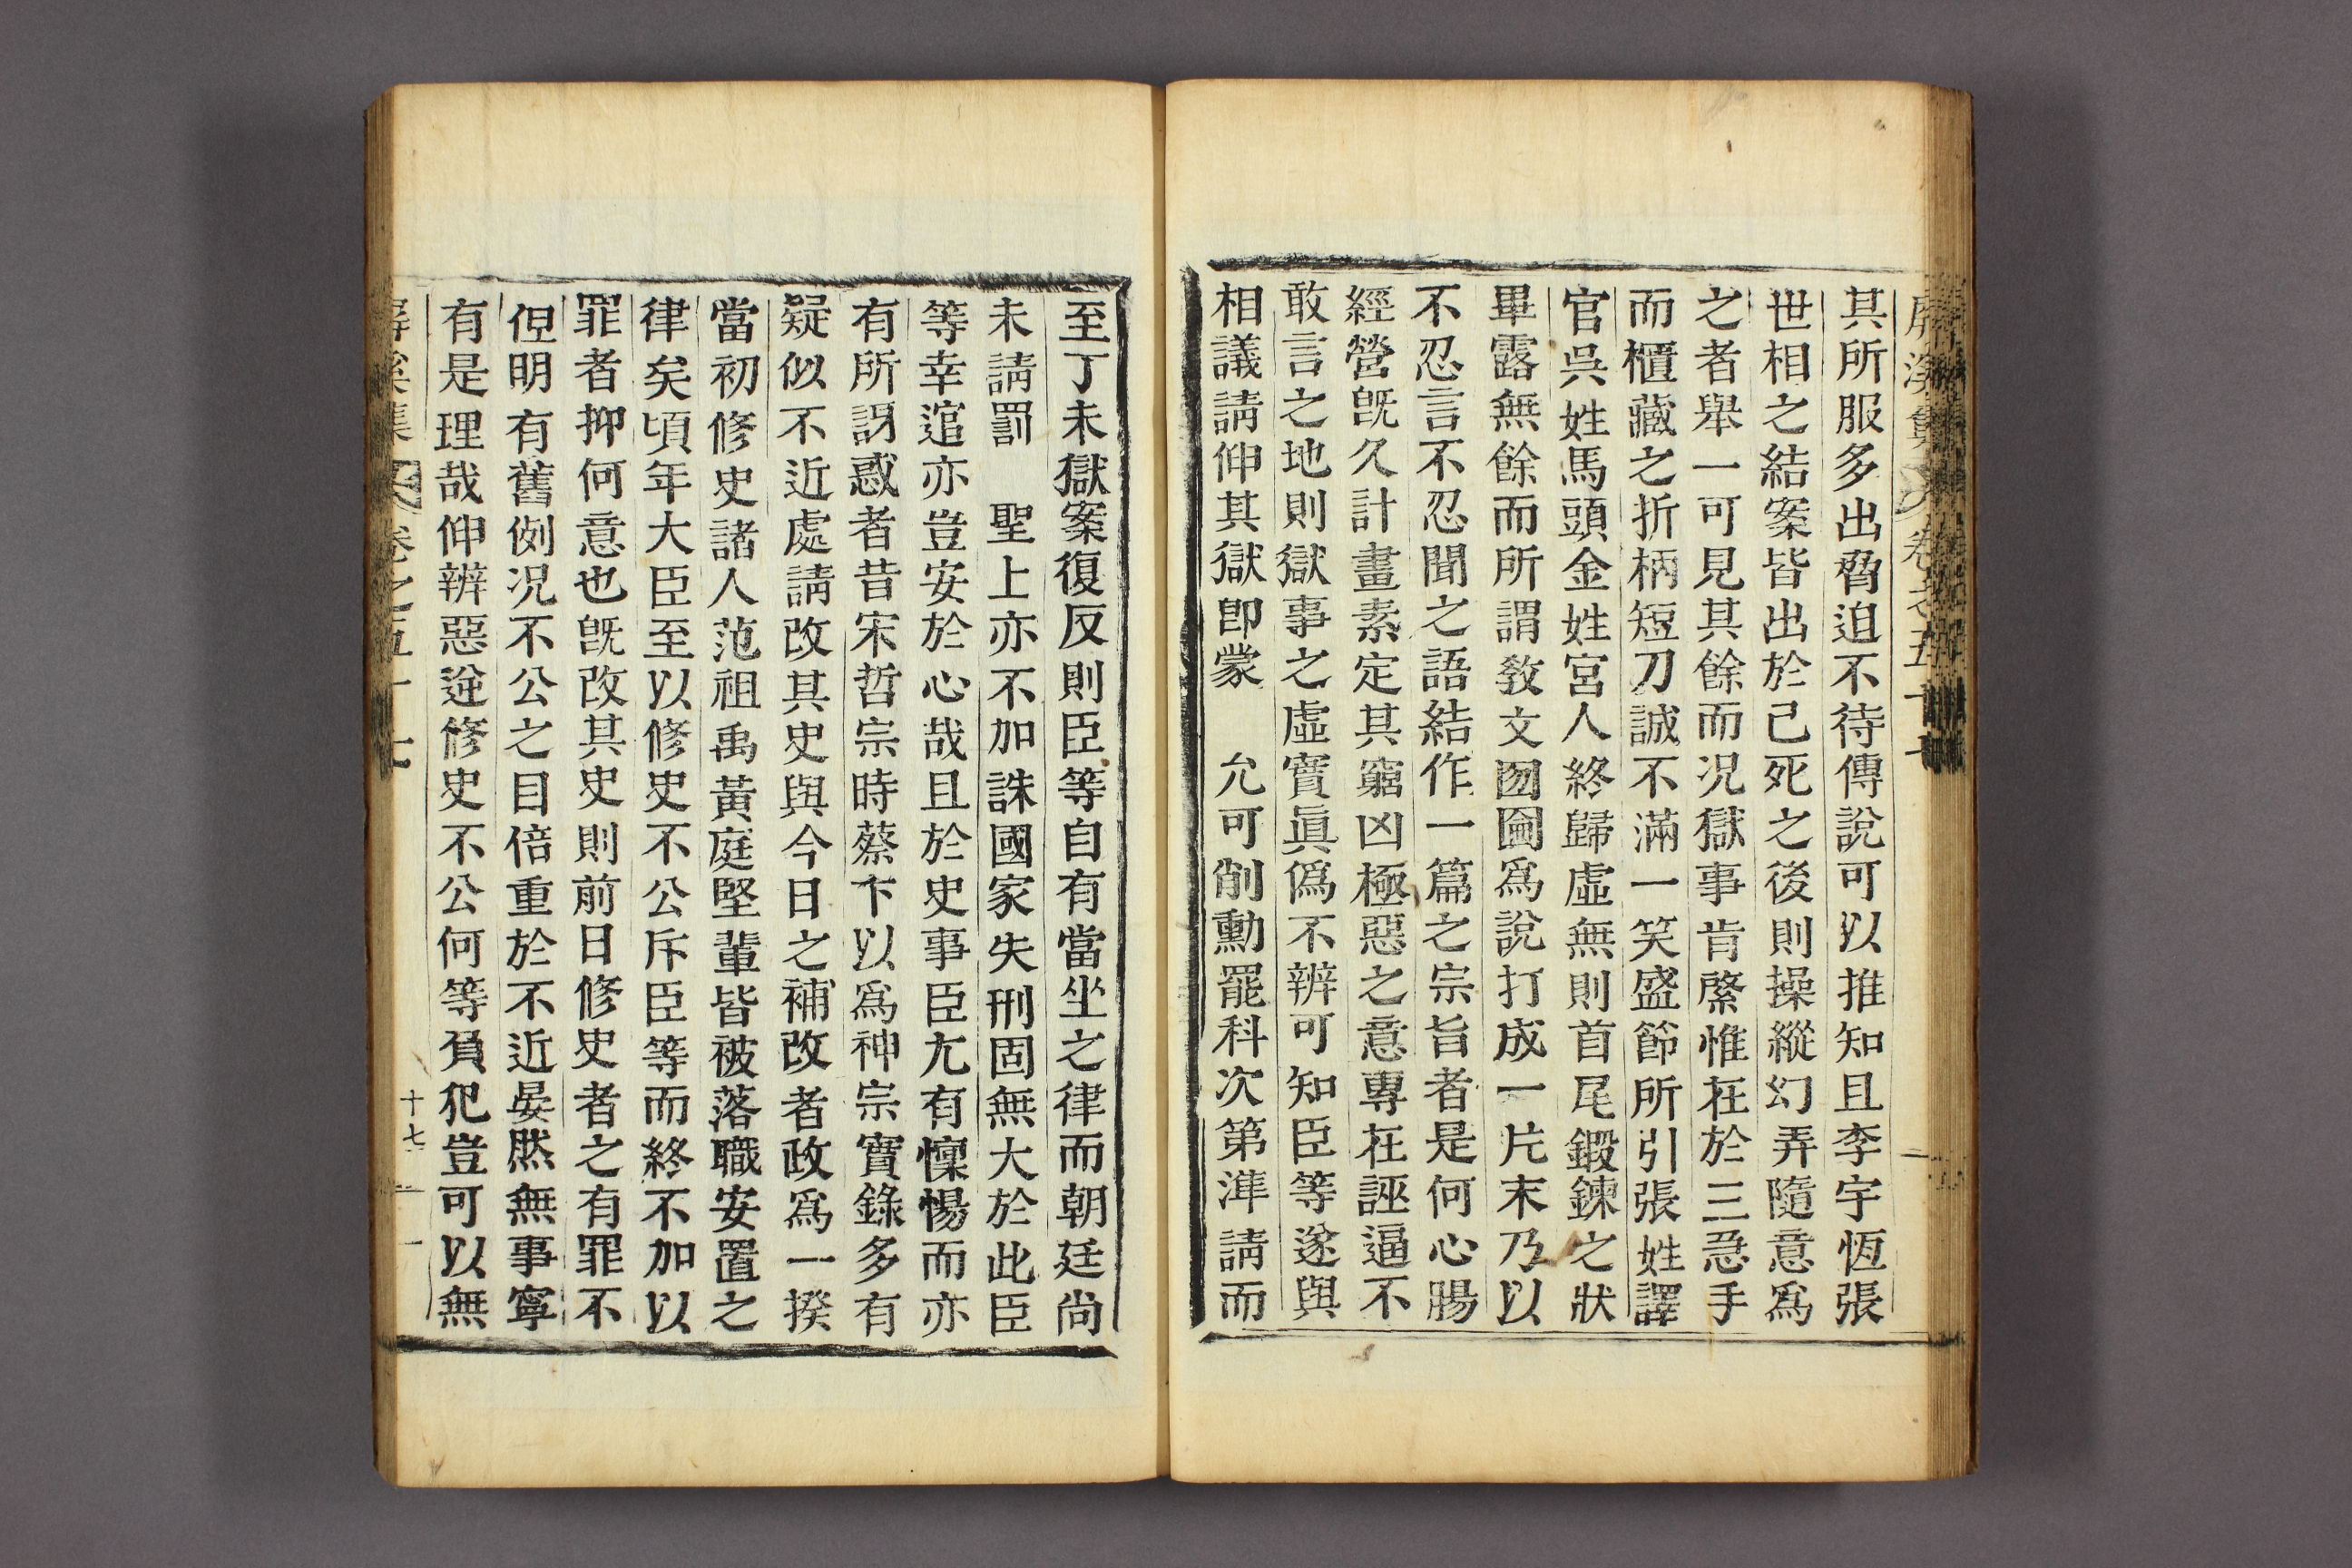 其所服多出脅迫不待傳說可以推知且李宇恆張
世相之結案皆出於己死之後則操縱幻弄隨意爲
之者舉一可見其餘而况獄事肯綮惟在於三急手
而櫃藏之折柄短刀誠不滿一笑盛節所引張姓譯
官吳姓馬頭金姓宮人終歸虛無則首尾鍛鍊之狀
畢露無餘而所謂敎文囫圇爲說打成一片末乃以
不忍言不忍聞之語結作一篇之宗旨者是何心膓
經營旣久計畫素定其窮凶極惡之意專在誣逼不
敢言之地則獄事之虛實眞僞不辨可知臣等遂與
相議請伸其獄卽蒙　允可削勳罷科次第準請而
至丁未獄案復反則臣等自有當坐之律而朝廷尙
未請罰　聖上亦不加誅國家失刑固無大於此臣
等幸逭亦豈安於心哉且於史事臣尤有懍惕而亦
有所訝惑者昔宋哲宗時蔡卞以爲神宗實錄多有
疑似不近處請改其史與今日之補改者政爲一揆
當初修史諸人范祖禹黃庭堅輩皆被落職安置之
律矣頃年大臣至以修史不公斥臣等而終不加以
罪者抑何意也旣改其史則前日修史者之有罪不
但明有舊例况不公之目倍重於不近晏然無事寧
有是理哉伸辨惡逆修史不公何等負犯豈可以無
屛溪集 卷之五十七
十七